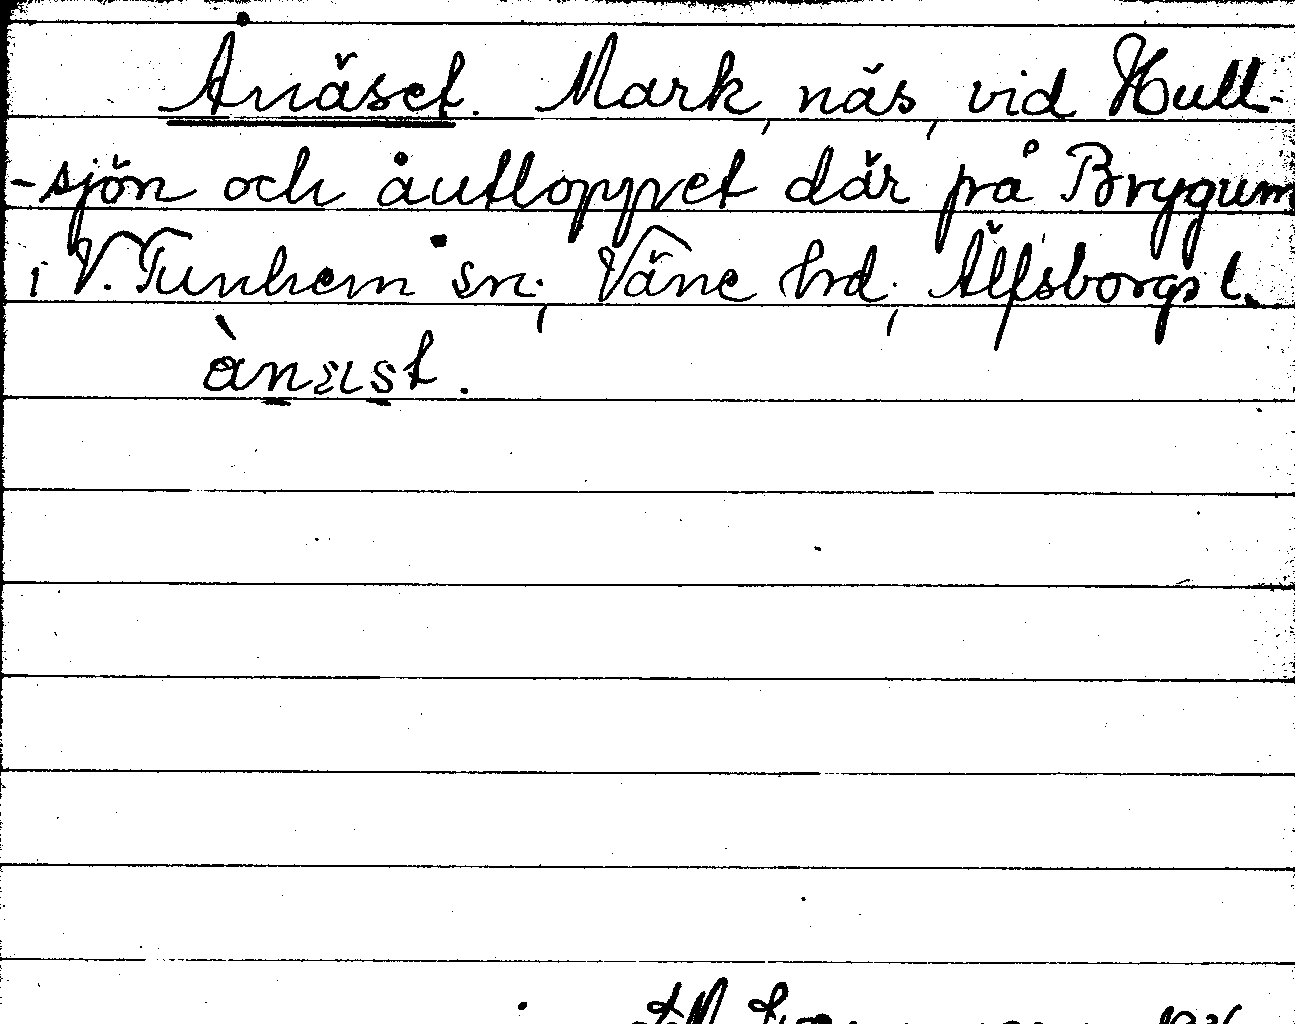 Ånäset. Mark, näs, vid Hull-
-sjön och åutloppet där på Brygum
i V. Tunhem sn., Väne hrd., Älfsborgs l.